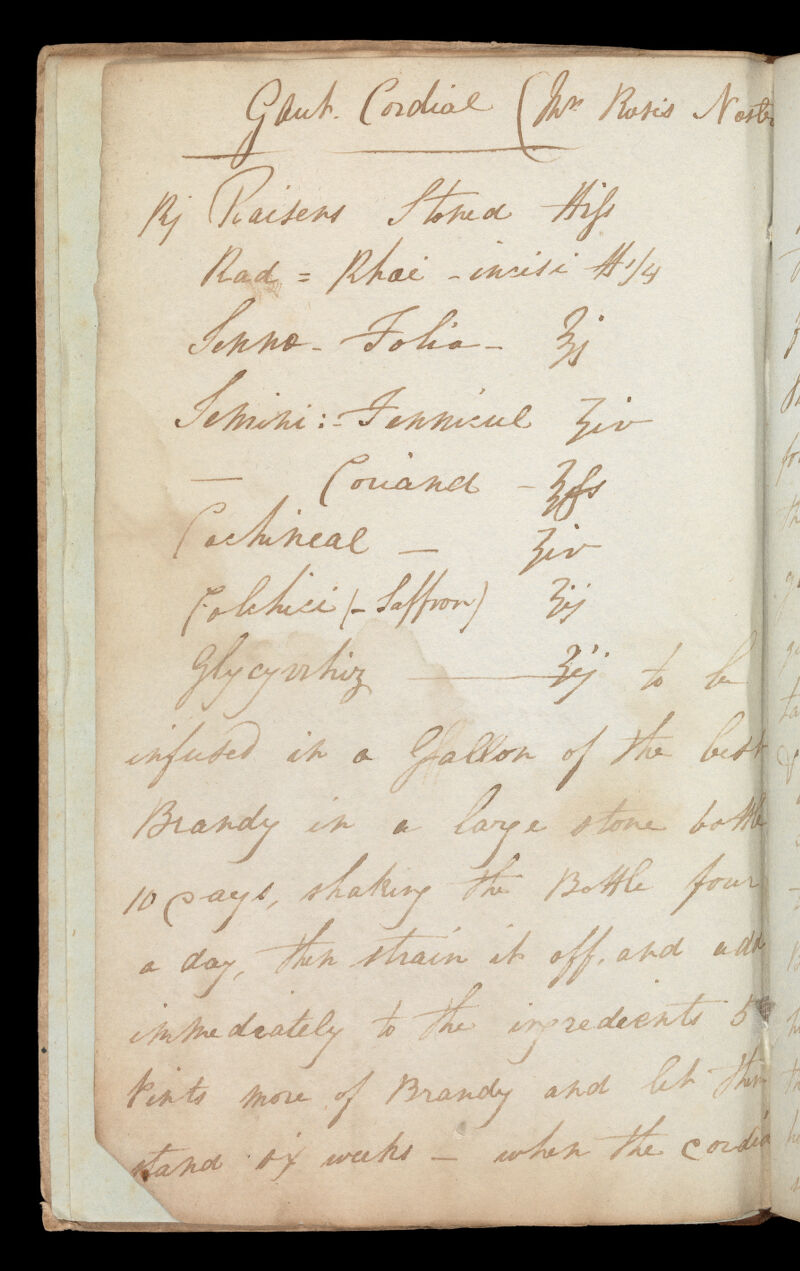 Gout. Cordial (Mrs Roses Nost
℞ Raisens Stoned ℔iſs
Rad = Rhæi - incisi ℔ 1/4
Senna - Folia - ℥j
Semini :- Fennicul ʒiv
— Coriand - ʒſs
Cochineal — ʒiv
Colchici (- Saffron) ʒij
Glycyrrhiz — ʒij to be
infused in a Gallon of the best
Brandy in a large stone bottle
10 Days, shaking the Bottle four
a day, then strain it off, and add
immediately to the ingredients 5
Pints more of Brandy and let them
stand six weeks — when the cordia